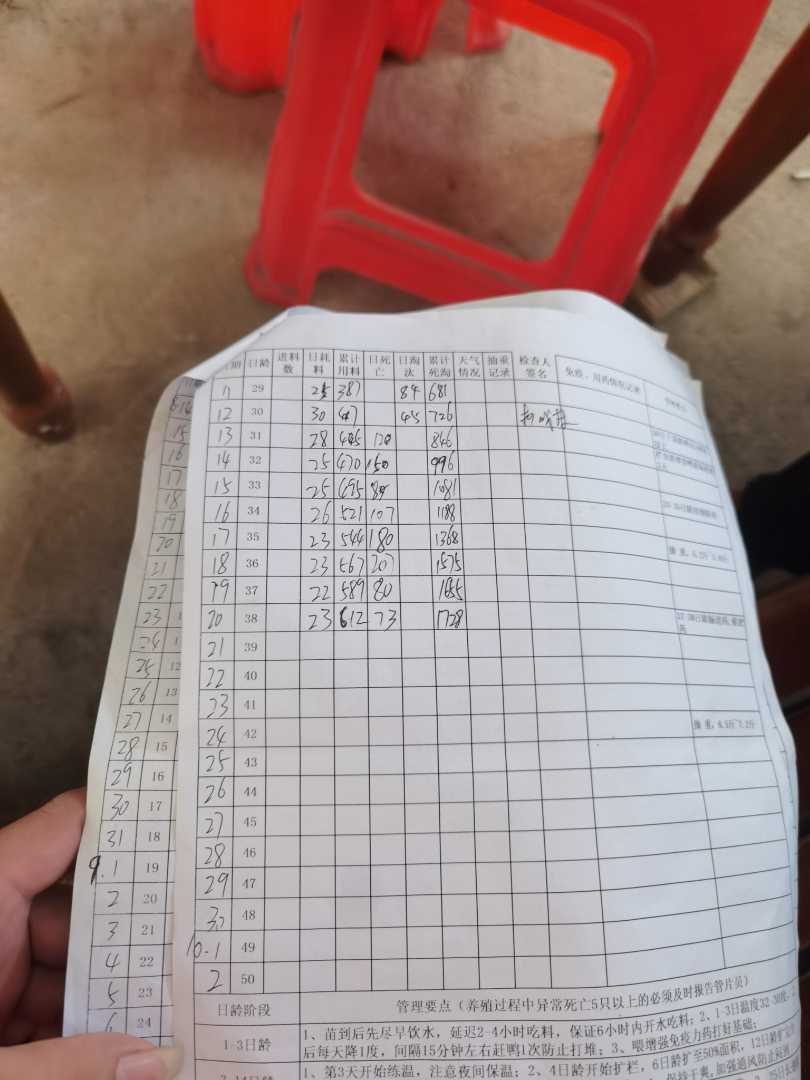 日期 日龄 进料数 日耗料 累计用料 日死亡 日淘汰 累计死淘 天气情况 抽重记录 检查人签名 免疫、用药情况记录
11 29 25 387 84 681
12 30 30 417 45 726
13 31 28 445 120 846
14 32 25 470 150 996
15 33 25 495 85 1081
16 34 26 521 107 1188
17 35 23 544 180 1368
18 36 23 567 207 1575
19 37 22 589 80 1655
20 38 23 612 73 1728
21 39
22 40
23 41
24 42
25 43
26 44
27 45
28 46
29 47
30 48
10.1 49
2 50
日龄阶段 管理要点（养殖过程中异常死亡5只以上的必须及时报告管片员）
1-3日龄 1、苗到后先尽早饮水，延迟2-4小时吃料，保证6小时内开水吃料；2、1-3日温度32-30度，
后每天降1度，间隔15分钟左右赶鸭1次防止打堆；3、喂增强免疫力药打好基础；
1、第3天开始练温，注意夜间保温；2、4日龄开始扩栏，6日龄扩至50%面积，12日龄扩
15
16
17
18
19
20
21
22
23
24
25 12
26 13
27 14
28 15
29 16
30 17
31 18
9.1 19
2 20
3 21
4 22
5 23
6 24